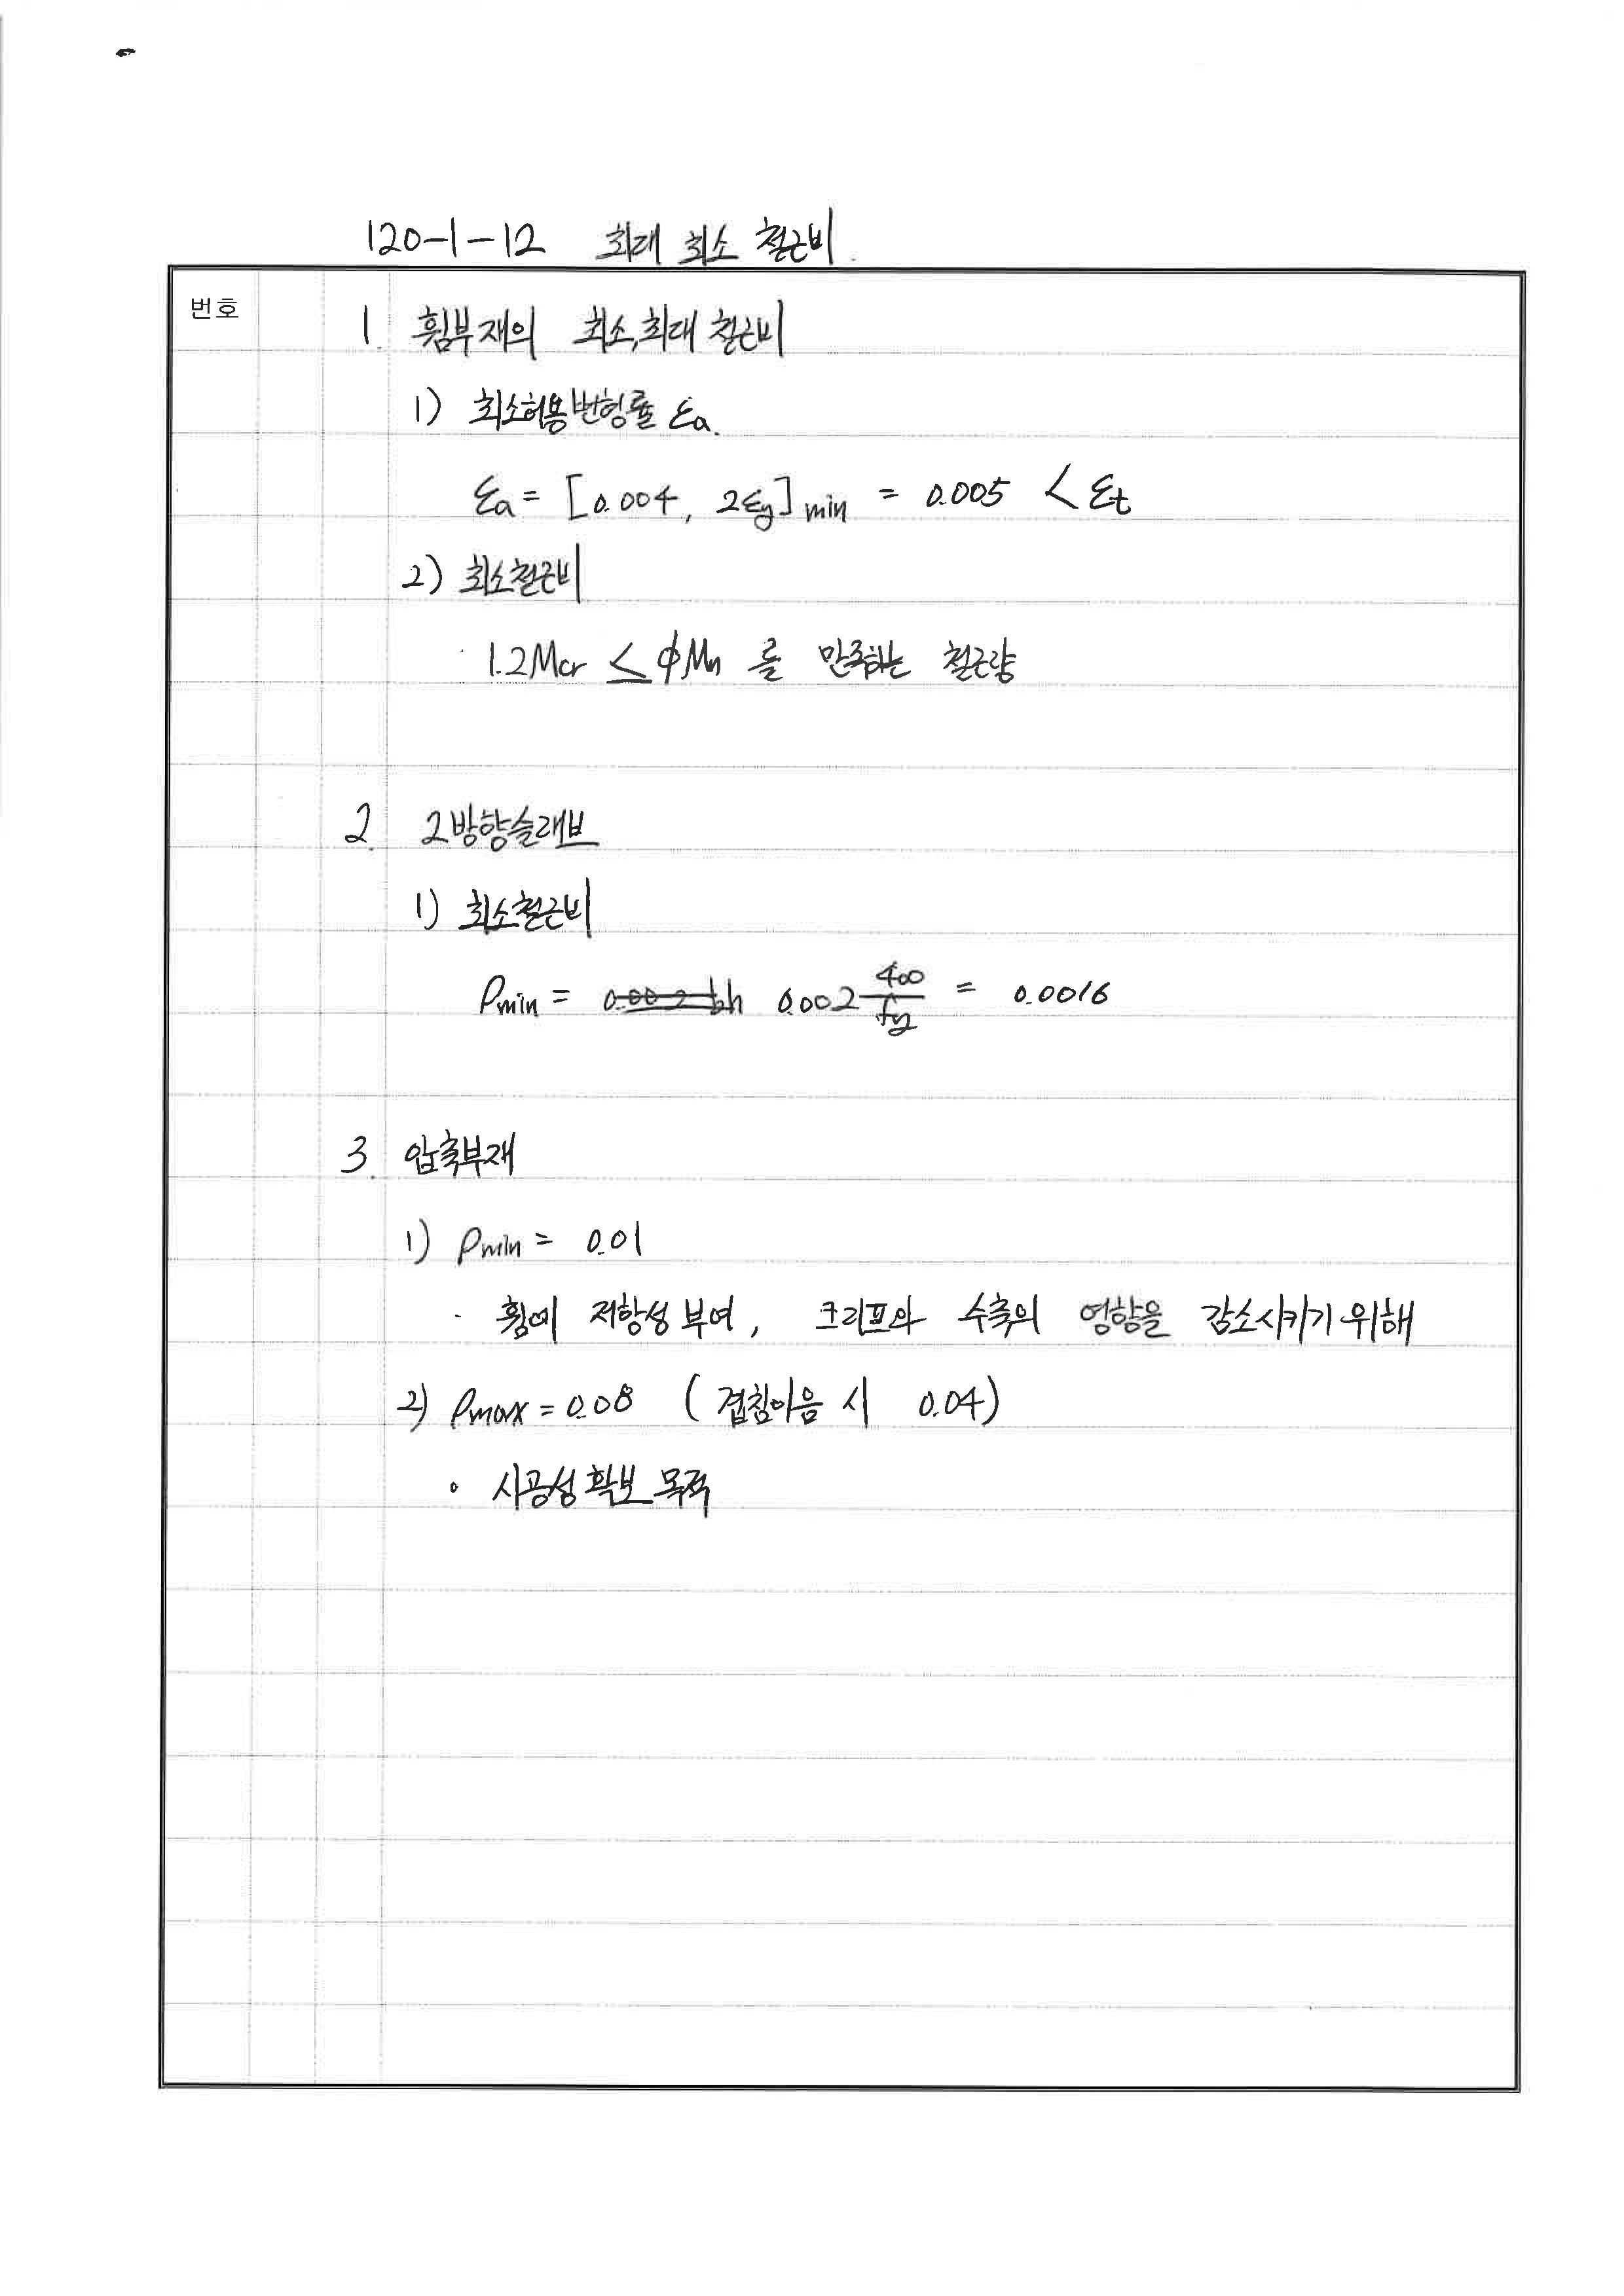 120-1-12 최대 최소 철근비.
번호
1. 휨부재의 최소,최대 철근비
1) 최소허용변형률 εa.
εa = [0.004, 2εy]min = 0.005 < εt
2) 최소철근비
· 1.2Mcr ≤ φMn 를 만족하는 철근량
2. 2방향슬래브
1) 최소철근비
ρmin = 0.002 bh 0.002 400/fy = 0.0016
3. 압축부재
1) ρmin = 0.01
· 휨에 저항성 부여, 크리프와 수축의 영향을 감소시키기 위해
2) ρmax = 0.08 (겹침이음 시 0.04)
· 시공성 확보 목적